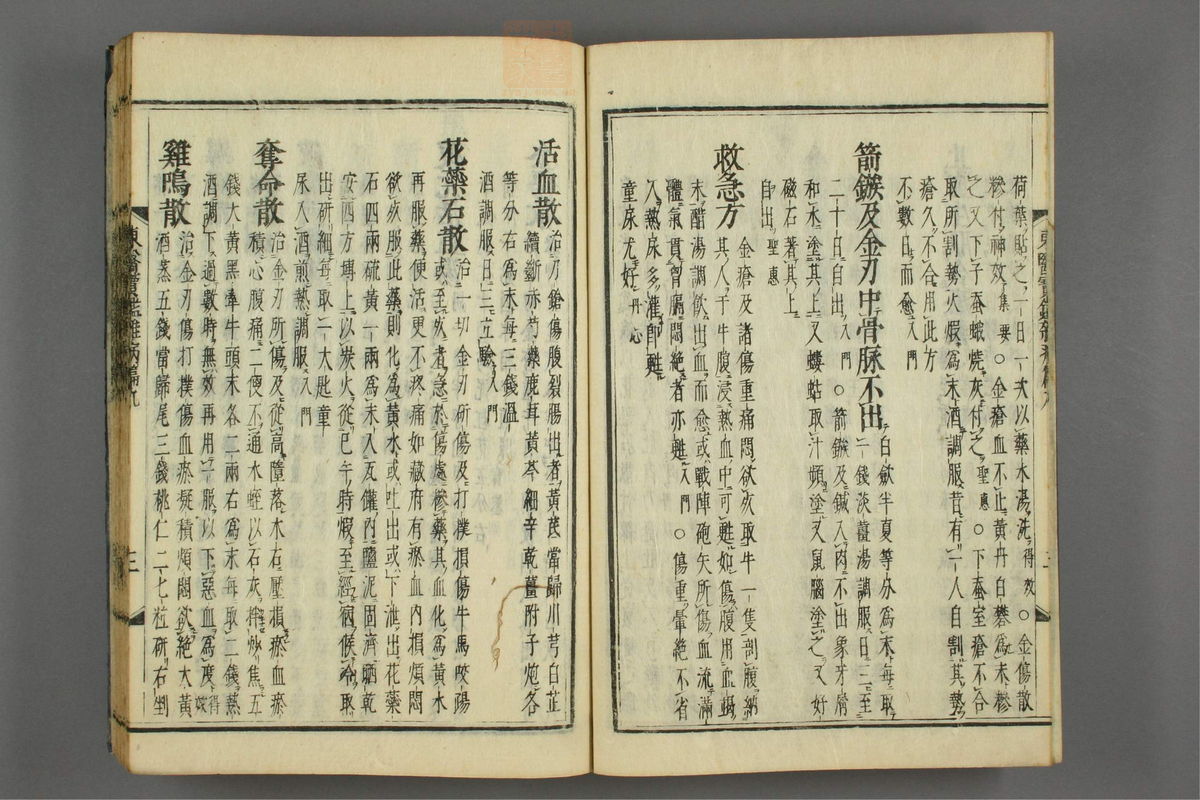 荷葉貼之一日一次以藥水湯洗得效○金傷散
糝付神效集要○金瘡血不止黃丹白礬爲末糝
之又下子蚕蛾燒灰付之聖惠○下蚕室瘡不合
取所割勢火煆爲末酒調服昔有一人自割其勢
瘡久不合用此方
不數日而愈入門
箭鏃及金刃中骨脉不出
白斂半夏等分爲末每取
一錢淡薑湯調服日三至
二十日自出入門○箭鏃及鍼入肉不出象牙屑
和水塗其上又螻蛄取汁頻塗又鼠腦塗之又好
磁石著其上
自出聖惠
救急方
金瘡及諸傷重痛悶欲死取牛一隻剖腹納
其人于牛腹浸熱血中可甦如傷腹用血竭
末醋湯調飮出血而愈或戰陣砲矢所傷血流滿
體氣貫胷膈悶絶者亦甦入門○傷重暈絶不省
人熱尿多灌卽甦
童尿尤好丹心
活血散
治刀鎗傷腹裂腸出者黃芪當歸川芎白芷
續斷赤芍藥鹿茸黃芩細辛乾薑附子炮各
等分右爲末每三錢溫
酒調服日三立驗入門
花藥石散
治一切金刃斫傷及打撲損傷牛馬咬踢
或至死者急於傷處糝藥其血化爲黃水
再服藥便活更不疼痛如藏府有瘀血內損煩悶
欲死服此藥則化爲黃水或吐出或下泄出花藥
石四兩硫黃一兩爲末入瓦鑵內鹽泥固濟晒乾
安四方塼上以炭火從巳午時煆至經宿候冷取
出研細每取一大匙童
尿入酒煎熱調服入門
奪命散
治金刃所傷及從高墮落木石壓損瘀血瘀
積心腹痛二便不通水蛭以石灰拌炒焦五
錢大黃黑牽牛頭末各二兩右爲末每取二錢熱
酒調下過數時無效再用一服以下惡血爲度得效
雞鳴散
治金刃傷打撲傷血瘀凝積煩悶欲絶大黃
酒蒸五錢當歸尾三錢桃仁二七粒研右剉
東醫寶鑑雜病篇九